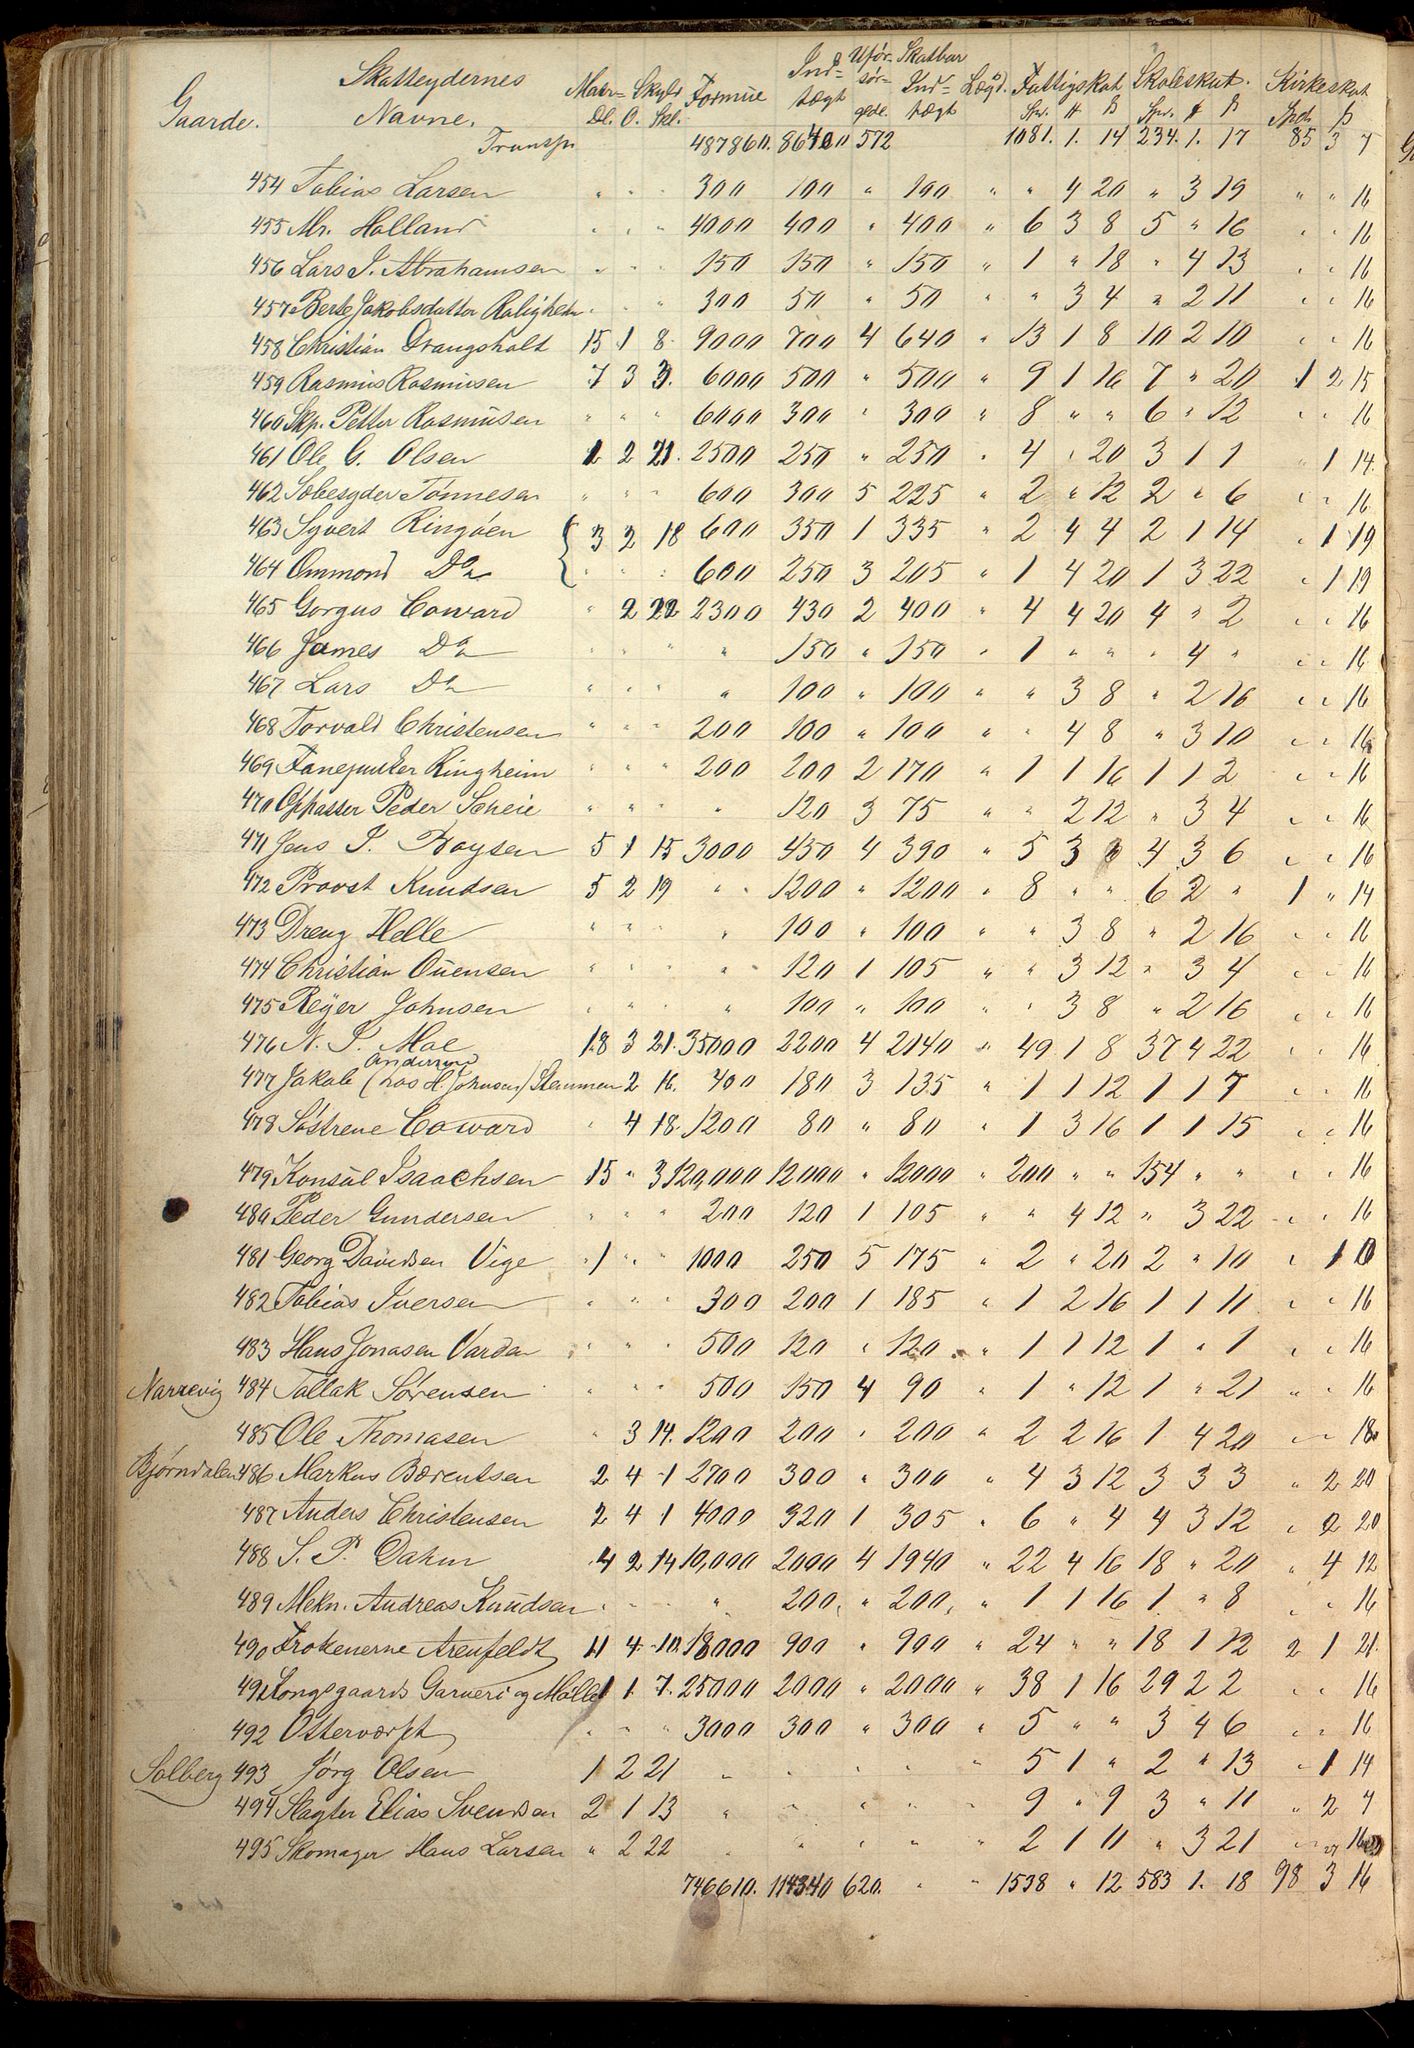 Gaarde. Skatteydernes Navne. Matr= Skyld Dl. O. Skl. Formue Ind= tægt Ufor= sør= gede. Skatbar Ind= tægt Lægd. Fattigskat Spd. # ß Skoleskat. Spd. # ß Kirkeskat Spd. ß
Transp. 487860. 86400 572 1081. 1. 14 234. 1. 17 85 3 7
454 Tobias Larsen " " " 300 100 " 100 " " 4 20 " 3 19 " " 16
455 Mr. Holland " " " 4000 400 " 400 " 6 3 8 5 " 16 " " 16
456 Lars J. Abrahamsen " " " 150 150 " 150 " 1 " 18 " 4 13 " " 16
457 Berte Jakobsdatter Raligheden " " " 300 50 " 50 " " 3 4 " 2 11 " " 16
458 Christian Drangsholt 15 1 8 9000 700 4 640 " 13 1 8 10 2 10 " " 16
459 Rasmus Rasmusen 7 3 3. 6000 500 " 500 " 9 1 16 7 " 20 1 2 15
460 Skp. Petter Rasmusen " " " 6000 300 " 300 " 8 " " 6 " 12 " " 16
461 Ole G. Olsen 1 2 21. 2500 250 " 250 " 4 " 20 3 1 1 " 1 14
462 Tobesyder Tönnesen " " " 600 300 5 225 " 2 " 12 2 " 6 " " 16
463 Syvert Ringöen { 3 2 18 600 350 1 335 " 2 4 4 2 1 14 " 1 19
464 Ommond Do " " " 600 250 3 205 " 1 4 20 1 3 22 " 1 19
465 Gorgus Coward " 2 22 2300 430 2 400 " 4 4 20 4 " 2 " " 16
466 James Do " " " " 150 " 150 " 1 " " " 4 " " " 16
467 Lars Do " " " " 100 " 100 " " 3 8 " 2 16 " " 16
468 Torvald Christensen " " " 200 100 " 100 " " 4 8 " 3 10 " " 16
469 Fanejunker Ringheim " " " 200 200 2 170 " 1 1 16 1 1 2 " " 16
470 Oppasser Peder Scheie " " " " 120 3 75 " " 2 12 " 3 4 " " 16
471 Jens J. Boysen 5 1 15 3000 450 4 390 " 5 3 4 3 6 " " 16
472 Provst Knudsen 5 2 19 " 1200 " 1200 " 8 " " 6 2 " 1 " 14
473 Dreng Helle " " " " 100 " 100 " " 3 8 " 2 16 " " 16
474 Christian Ouensen " " " " 120 1 105 " " 3 12 " 3 4 " " 16
475 Reÿer Johnsen " " " " 100 " 100 " " 3 8 " 2 16 " " 16
476 N. P. Moe 18 3 21. 35000 2200 4 2140 " 49 1 8 37 4 22 " " 16
Andersen
477 Jakob (hos H. Johnsen) Stemmen 2 16. 400 180 3 135 " 1 1 12 1 1 7 " " 16
478 Söstrene Coward " 4 18. 1200 80 " 80 " 1 3 16 1 1 15 " " 16
479 Konsul Isaachsen 15 " 3 120,000 12000 " 12000 " 200 " " 154 " " " " 16
480 Peder Gundersen " " " 200 120 1 105 " " 4 12 " 3 22 " " 16
481 Georg Davidsen Vige " 1 " " 1000 250 5 175 " 2 " 20 2 " 10 " 1 0
482 Tobias Iversen " " " 300 200 1 185 " 1 2 16 1 1 11 " " 16
483 Hans Jonasen Varden " " " 500 120 " 120 " 1 1 12 1 " 1 " " 16
Narrevig 484 Tallak Sørensen " " " 500 150 4 90 " 1 " 12 1 " 21 " " 16
485 Ole Thomasen " 3 14. 1200 200 " 200 " 2 2 16 1 4 20 " " 18
Bjørndalen 486 Markus Bærentsen 2 4 1 2700 300 " 300 " 4 3 12 3 3 3 " 2 20
487 Anders Christensen 2 4 1 4000 320 1 305 " 6 " 4 4 3 12 " 2 20
488 S. P. Dahm 4 2 14 10,000 2000 4 1940 " 22 4 16 18 " 20 " 4 12
489 Mekn. Andreas Knudsen " " " " 200 " 200 " 1 1 16 1 " 8 " " 16
490 Frøkenerne Arenfeldt 11 4 10. 18000 900 " 900 " 24 " " 18 1 12 2 1 21.
491 Longsgaards Garveri og Mølle 1 1. 7. 25000 2000 " 2000 " 38 1 16 29 2 2 " " 16
492 Ostterværft " " " 3000 300 " 300 " 5 " " 3 4 6 " " 16
Solberg 493 Jörg Olsen 1 2 21 " " " " " 5 1 " 2 " 13 " 1 14
494 Slagter Elias Svendsen 2 1 13 " " " " " 9 " 9 3 " 11 " 2 7
495 Skomager Hans Larsen " 2 22 " " " " " 2 1 11 " 3 21 " " 16
746610. 114340 620. " " 1538 " 12 583 1. 18 98 3 16